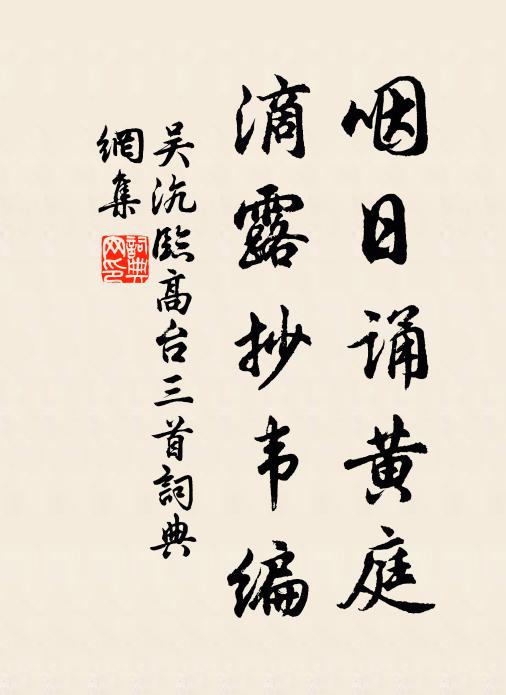 咽日诵黄庭
滴露抄韦编
吴沆臨高台三首詞典
網集
詞典
网印